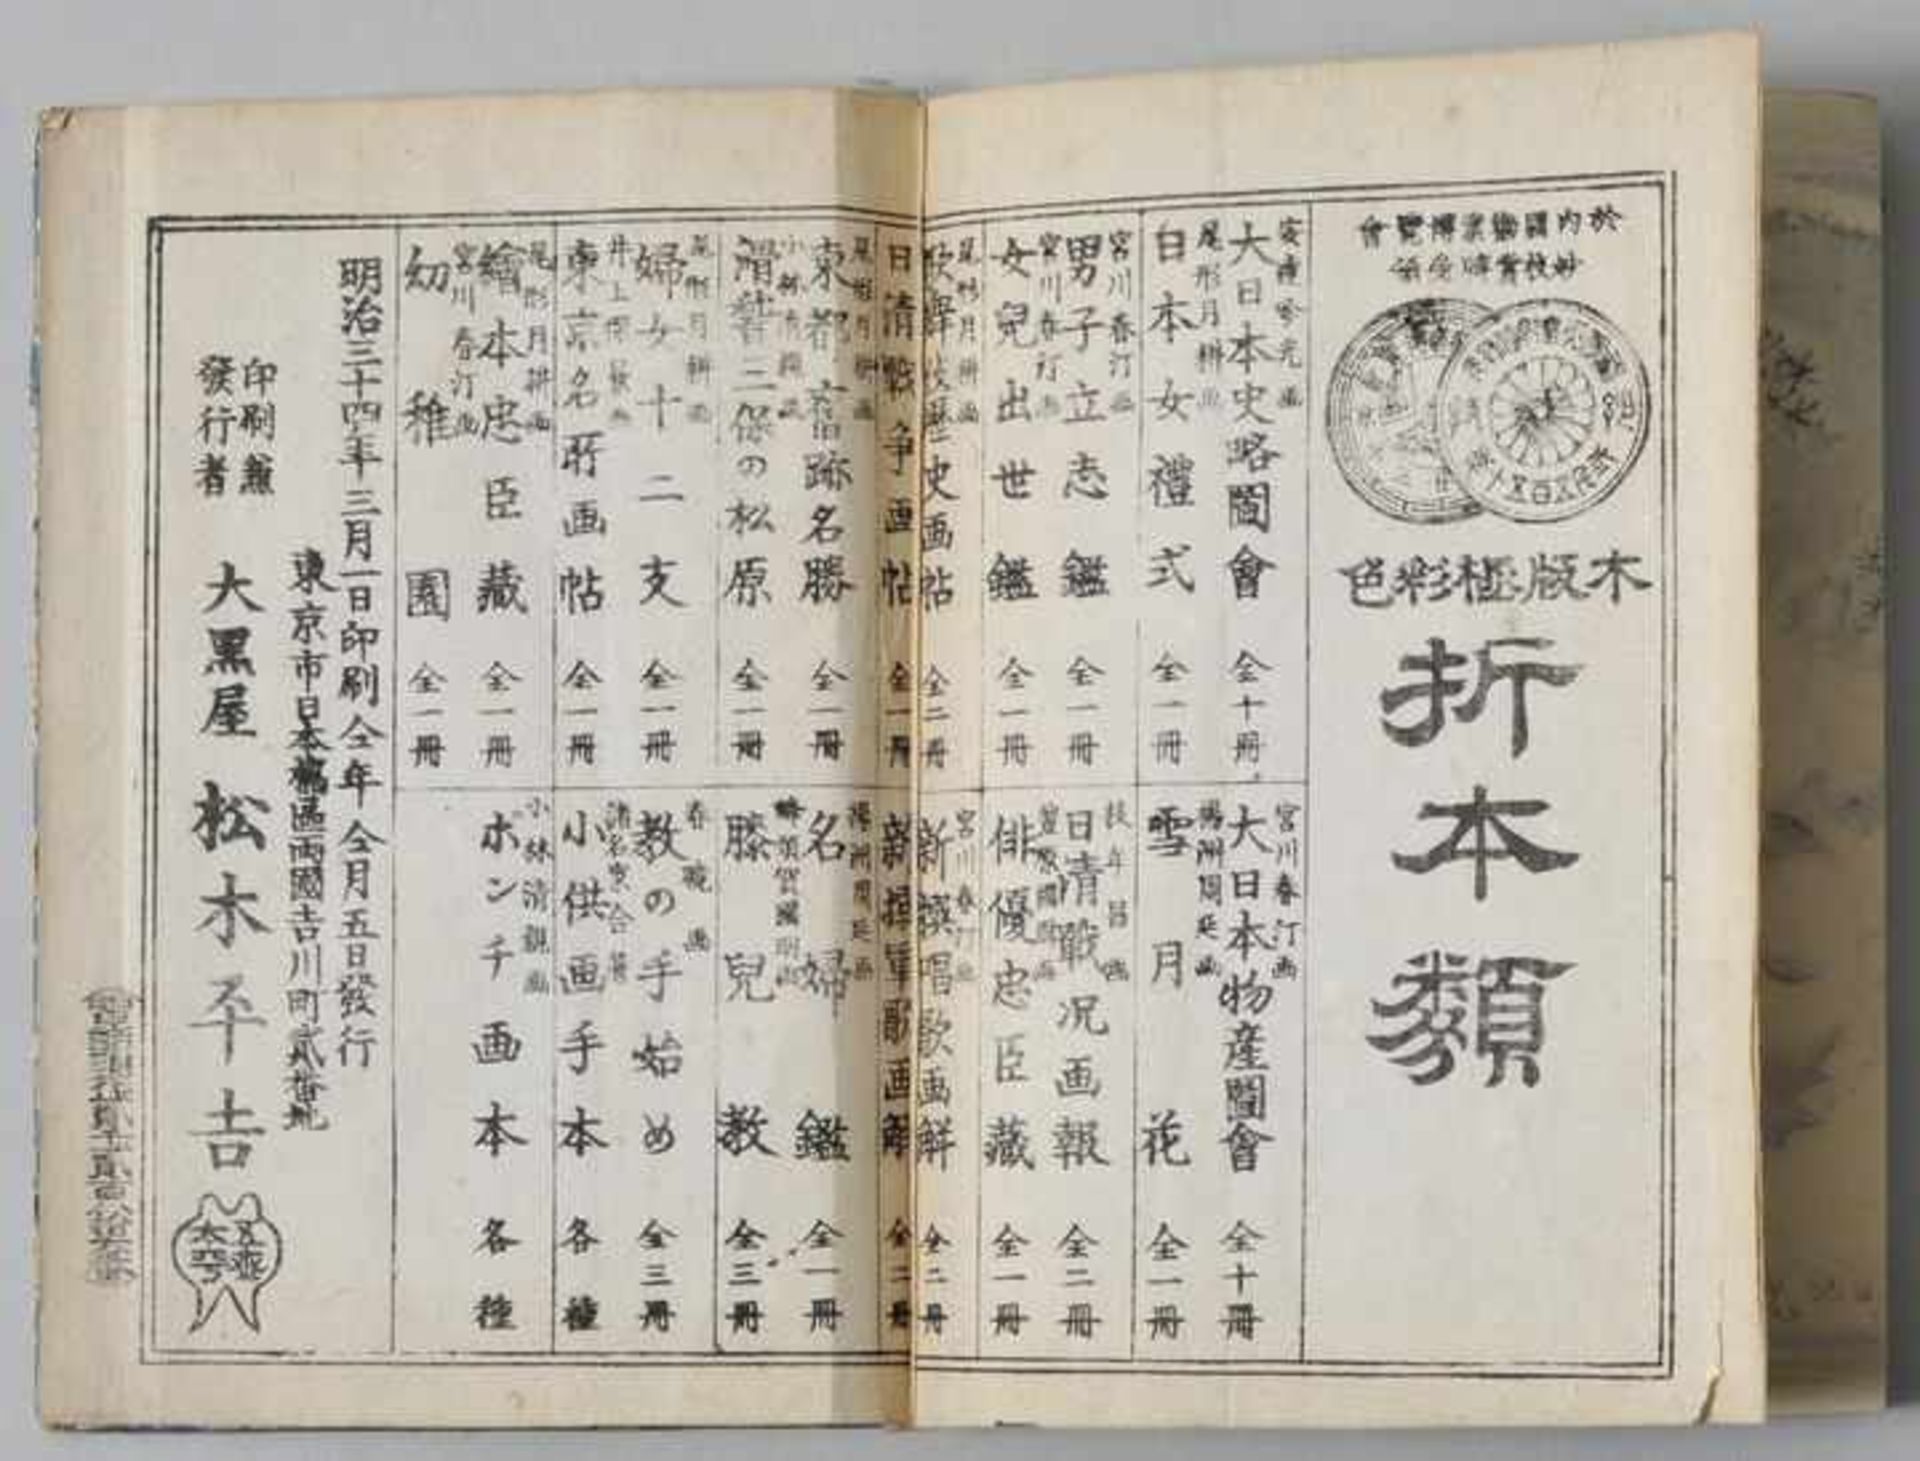 於内國勧業博覧會
妙技賞牌受領
木版極彩色
折本類
安達吟光画
大日本史略圖會 全十冊
尾形月耕画
日本女禮式 全一冊
宮川春汀画
男子立志鑑 全一冊
宮川春汀画
女兒出世鑑 全一冊
尾形月耕画
歌舞伎歴史画帖 全二冊
日清戦争画帖 全一冊
尾形月耕画
東都旧跡名勝 全一冊
小林清親画
滑稽三保の松原 全一冊
尾形月耕画
婦女十二支 全一冊
井上探景画
東京名所画帖 全一冊
尾形月耕画
繪本忠臣藏 全一冊
宮川春汀画
幼稚園 全一冊
宮川春汀画
大日本物産圖會 全十冊
楊洲周延画
雪月花 全一冊
枝年昌画
日清戰况画報 全二冊
豊原國周画
俳優忠臣藏 全一冊
宮川春汀画
新撰唱歌画解 全二冊
新撰軍歌画解 全二冊
楊洲周延画
名婦鑑 全一冊
蜂須賀國明画
膝兒教 全三冊
春暁画
教の手始め 全三冊
諸名家合筆
小供画手本 各種
小林清親画
ポンチ画本 各種
明治三十四年三月一日印刷仝年仝月五日發行
東京市日本橋區両國吉川町貳番地
印刷兼
發行者
大黒屋 松木平吉